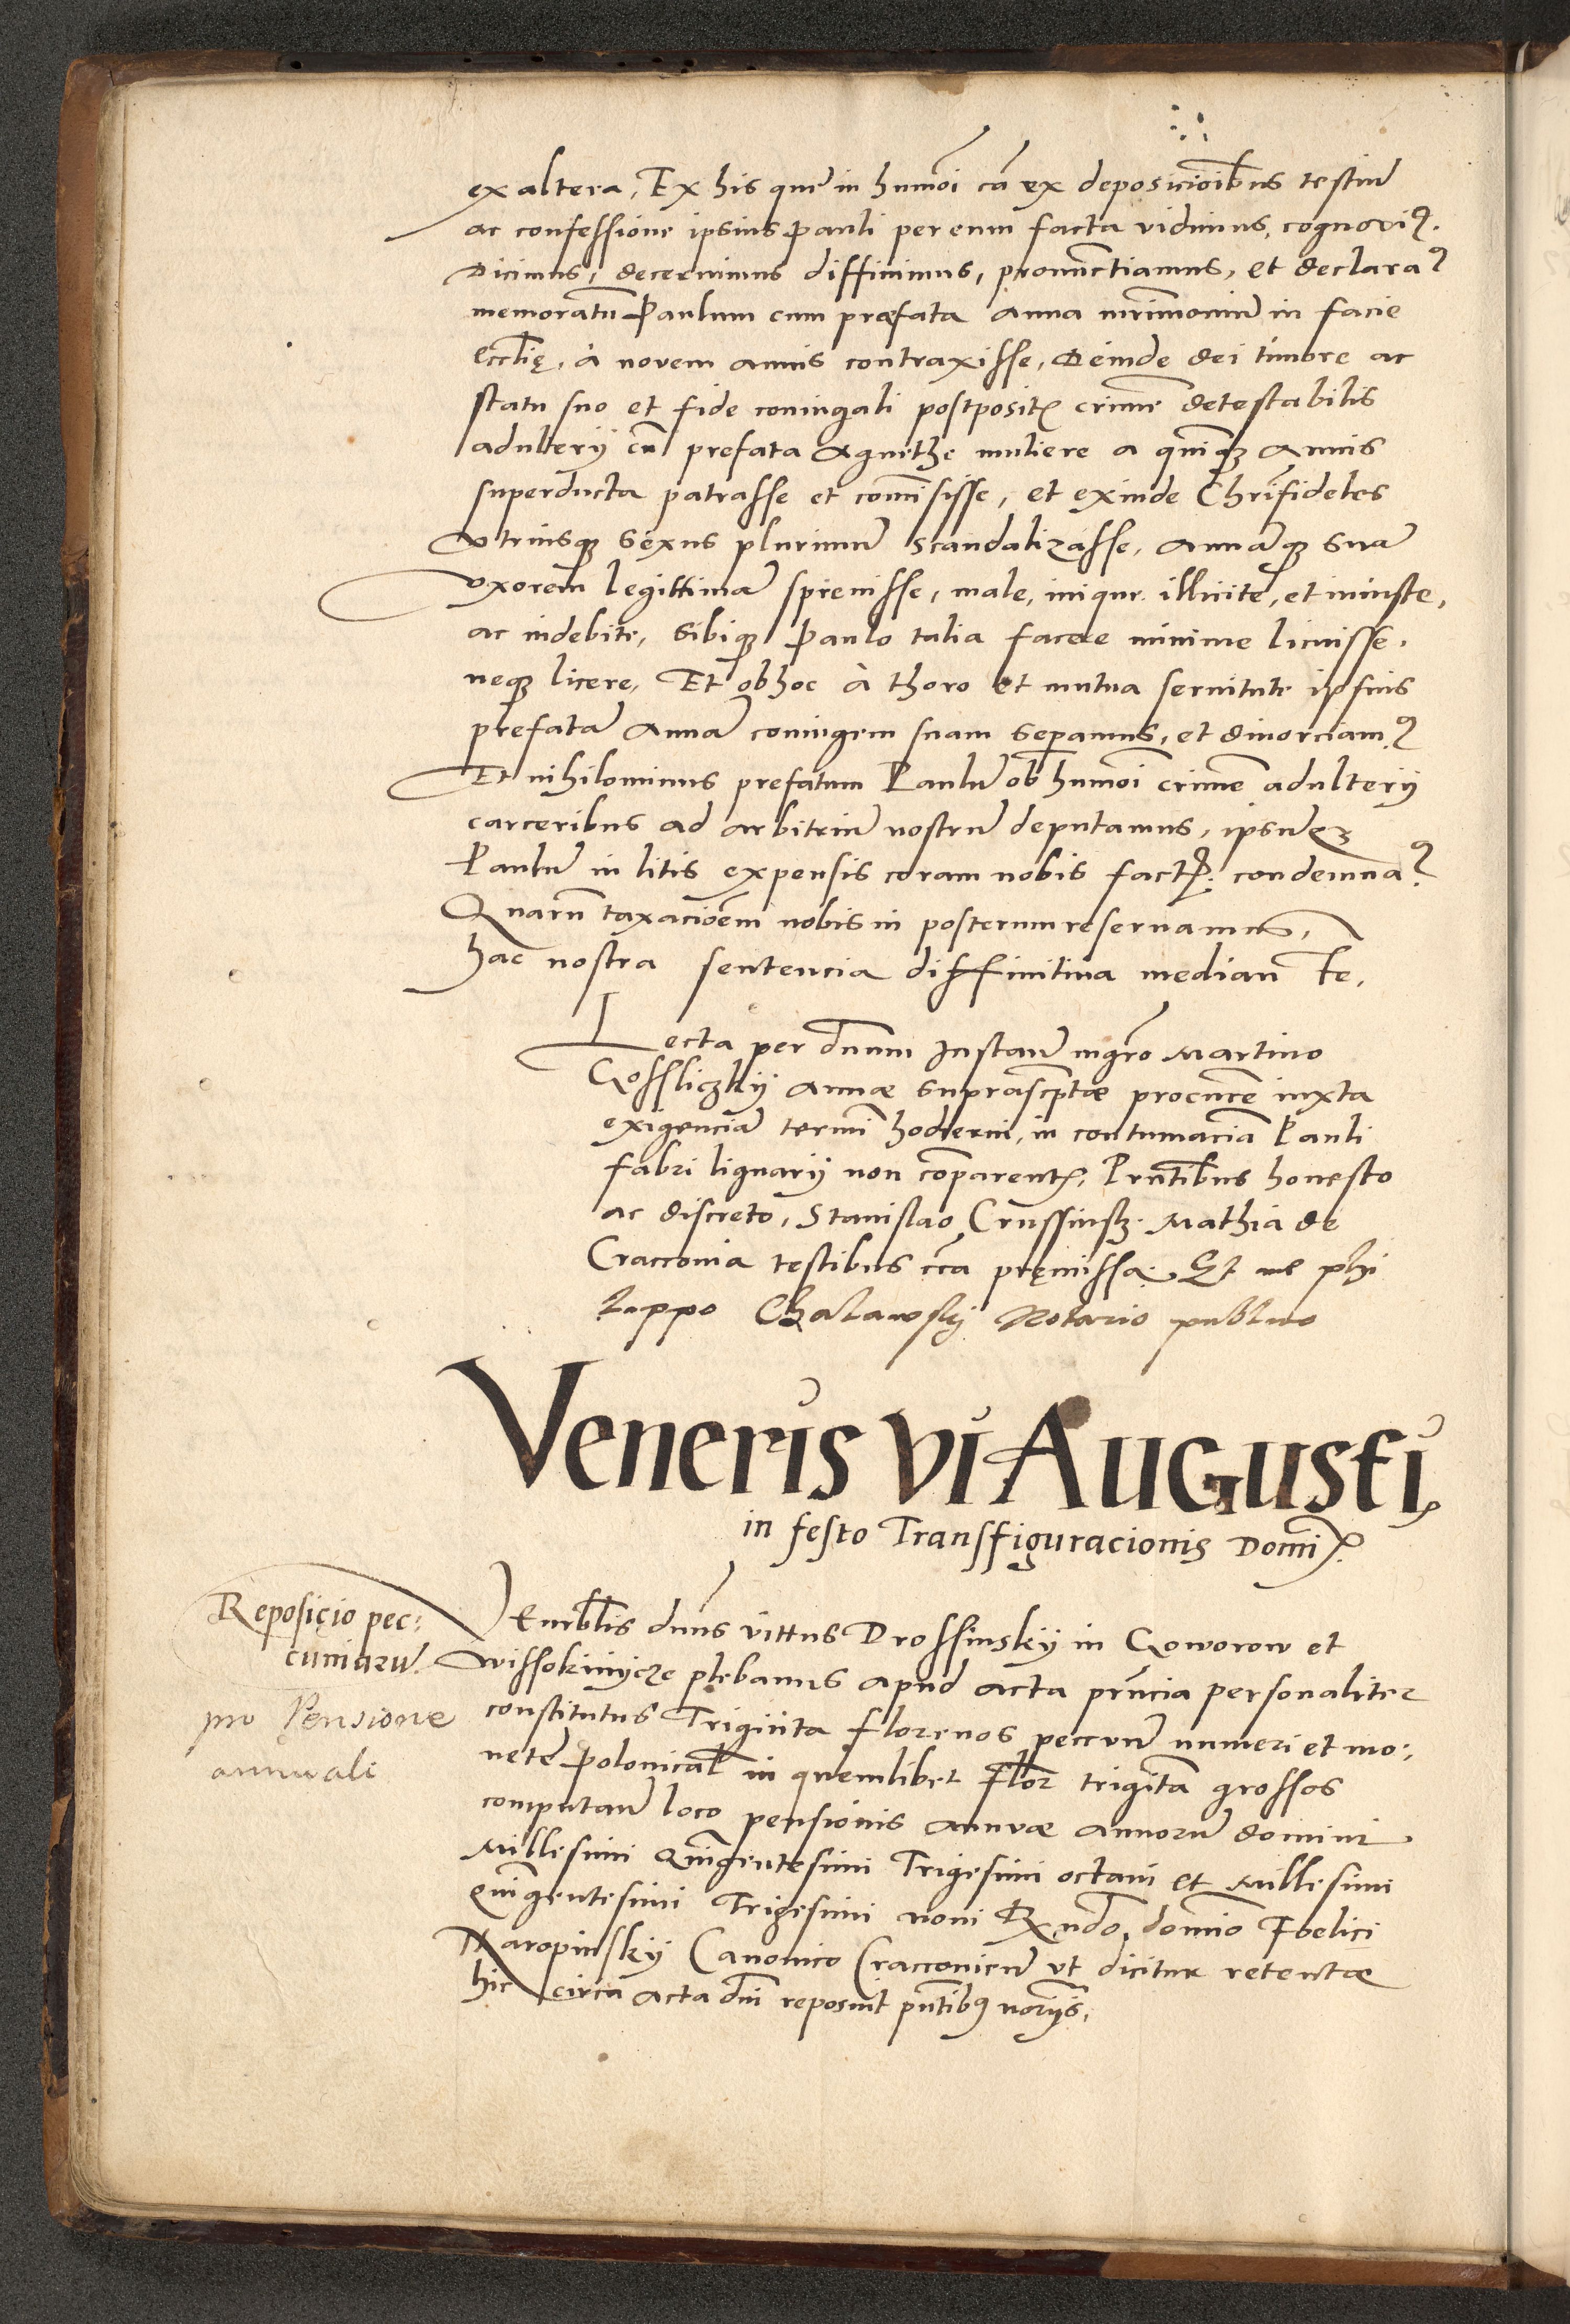 ex altera, Ex his que in humōi cā ex deposicioībus testiū
ac confessione ipsius Pauli per eum facta vidimus, cognovi⁹.
Dicimus, decernimus diffinimus, pronunctiamus, et declara⁹
memoratū Paulum cum præfata Anna mrīmoniū in facie
Ecclię, à novem annis contraxisse, Deinde dei timore ac
statu suo et fide coniugali postposit; crimē detestabilis
adulterÿ cū prefata Agnethe muliere a quinq; Annis
superducta patrasse et comīsisse, et exinde Chrīfideles
vtriusq; sexus plurimū scandalizasse, Annāq; suā
vxorem legittimā sprevisse, male, inique illicite, et iniuste,
ac indebite, sibiq; Paulo talia facere minime licuisse,
neq; licere, Et ob hoc à thoro et mutua seruitute ipsius
prefatā Annā coniugem suam sepamus, et diuorciam⁹
Et nihilominus prefatum Paulū ob humōi crimē adulterÿ
carceribus ad arbitriū nostrū deputamus, ipsūq;
Paulū in litis expensis coram nobis fact; condemna⁹.
Quarū taxacioēm nobis in posterum reseruamus,
hac nostra sentencia diffinitiua median te,
Lecta per dnūm Instan̄ mgrō Martino
Gossliczkÿ Annæ suprascptæ procurē iuxta
exigenciā terminī hodierni, in contumaciā Pauli
fabri lignarÿ non cōparent; Prntībus honesto
ac discreto, Stanislao Crussinsk; Mathia de
Cracovia testibus cca pręmissa. Et me phi
lippo Chalawskÿ Notario publico
Veneris Vi Augusti,
in festo Transfiguracionis Domi;
Reposicio pec:
cuniarū.
pro Pensione
annuali
Venrblis dnūs vittus Drossinskÿ in Goworow et
wissokinÿcze plebanus apud acta prncia personaliter
constitutus Triginta florenos peccun̄ numeri et mo:
netę Polonical in quemlibet Flor trigīta grossos
computan̄ loco pensionis Annuæ Annorū domini
Millesimi Quīngentesimi Trigesimi octaui et Millesimi
Quīngentesimi Trigesimi noni Rxndo domio Foelici
Naropinskÿ Canonico Cracovien̄ vt dicitur retentæ
hic circa acta dni reposuit pntib⁹ norÿs,